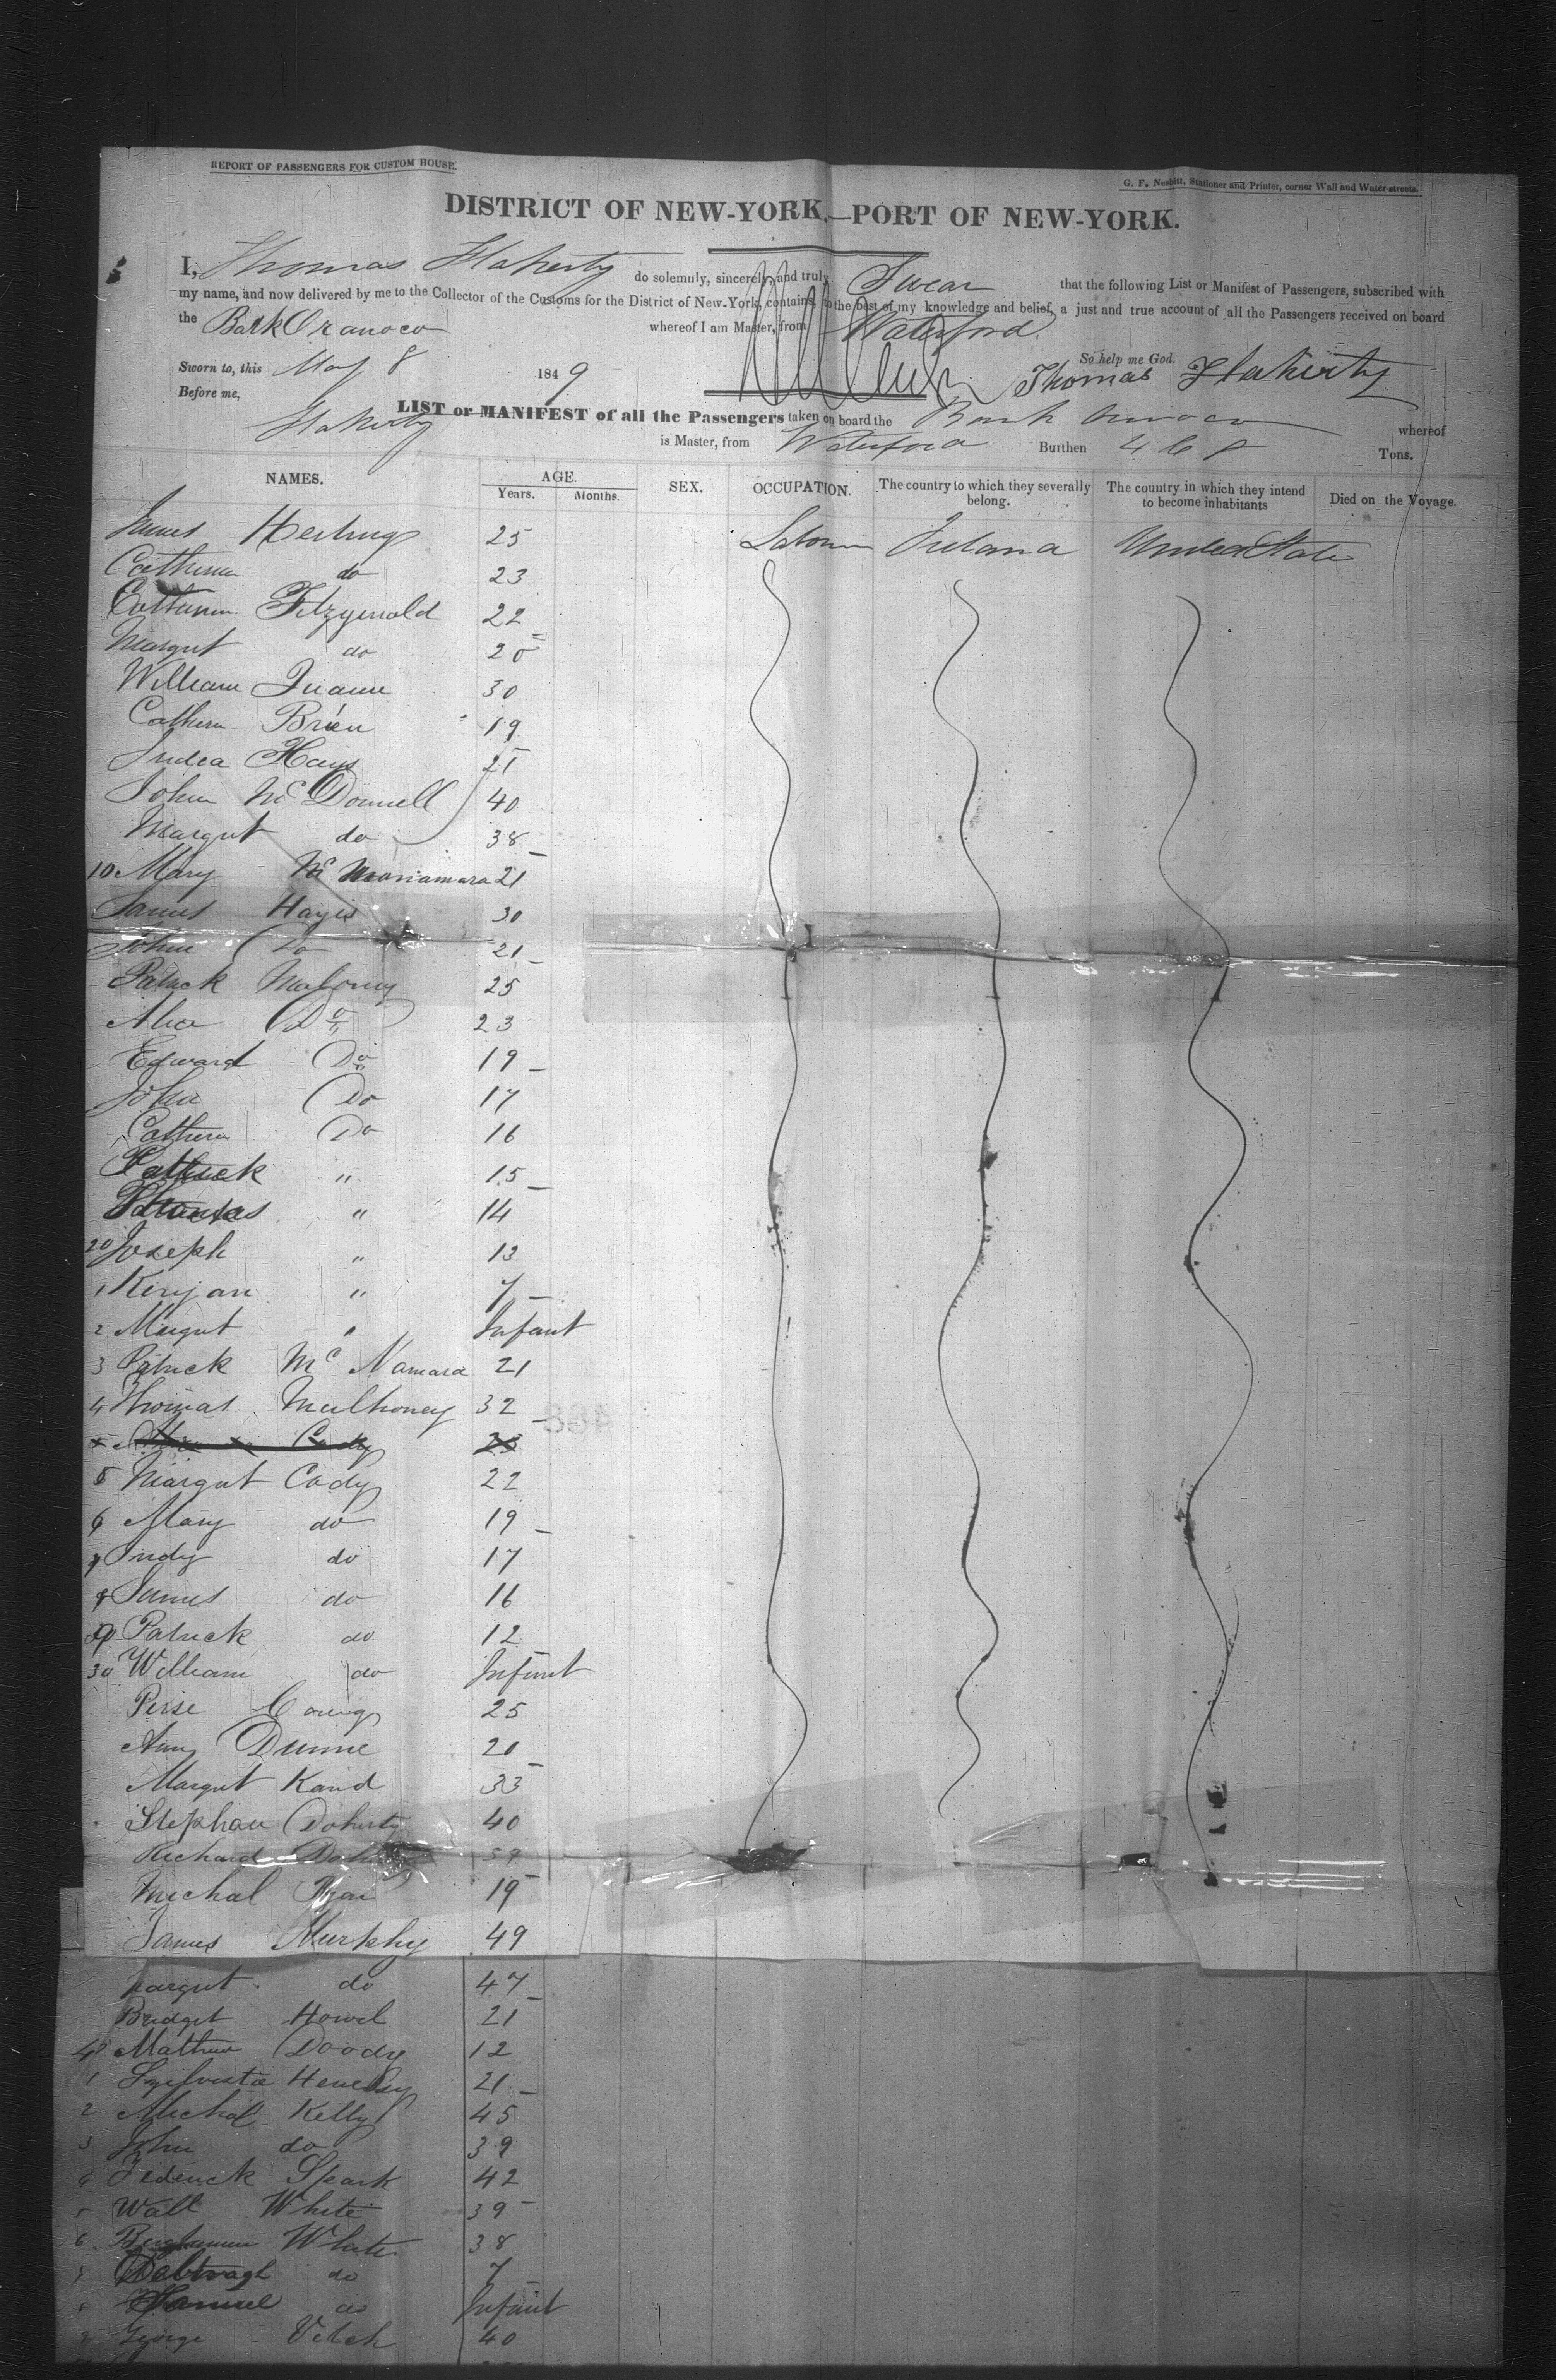 REPORT OF PASSENGERS FOR CUSTOM HOUSE.
G. F. Nesbitt, Stationer and Printer, corner Wall and Water-streets.
DISTRICT OF NEW-YORK,—PORT OF NEW-YORK.
I, Thomas Flaherty do solemnly, sincerely, and truly Swear that the following List or Manifest of Passengers, subscribed with
my name, and now delivered by me to the Collector of the Customs for the District of New-York, contains, to the best of my knowledge and belief, a just and true account of all the Passengers received on board
the Bark Oranoco whereof I am Master, from Waterford.
So help me God.
Sworn to, this May 8 1849 Thomas Flaherty
Before me,
LIST or MANIFEST of all the Passengers taken on board the Bark Oranoco whereof
Flaherty is Master, from Waterford Burthen 468 Tons.
NAMES. AGE. SEX. OCCUPATION. The country to which they severally belong. The country in which they intend to become inhabitants Died on the Voyage.
Years. Months.
James 25 Labourer Ireland United States
do 23
Fitzgerald 22
Margut do 20
William 30
Cathern Brien 19
Hays 21
John McDonnell 40
Margut do 38
10 Mary Mc 21
James Hayis 30
John Do 21
Patrick 25
Alice Do 23
Edward Do 19
John Do 17
Cathern Do 16
Patrick " 15
Thomas " 14
20 Joseph " 13
1 " 7
2 Margut " Infant
3 Patrick Mc Namara 21
4 Thomas Mulhoney 32
Cody 23
5 Margut Cody 22
6 Mary do 19
7 Judy do 17
8 James do 16
9 Patrick do 12
30 William do Infant
25
Dunne 20
Margut 33
Stephan Doherty 40
Richard 39
Michal Ryan 19
James Murphy 49
Margut do 47
Bridget Howel 21
40 Mathew Doody 12
1 Henessy 21
2 Michal Kelly 45
3 John do 39
4 Federick Spark 42
5 Wall White 39
6 White 38
7 do 7
8 Samuel do Infant
9 George Veleh 40